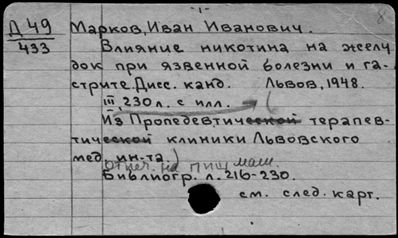 -1-
Д 49 Марков, Иван Иванович.
433 Влияние никотина на желу
док при язвенной болезни и га-
стрите. Дисс. канд. Львов, 1948.
III, 230 л. с илл.
Из Пропедевтической терапев-
тической клиники Львовского
мед. ин-та.)
Отпеч. на пиш. маш.
Библиогр. л. 216-230.
см. след. карт.